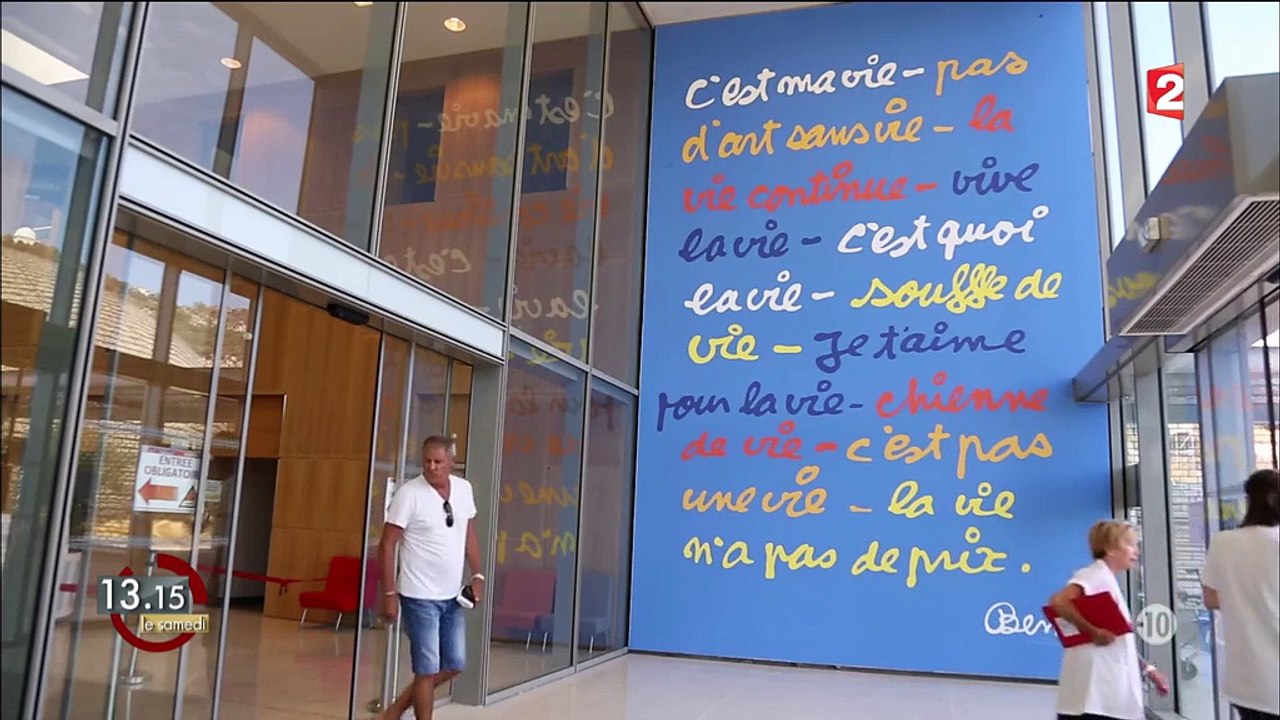 c'est ma vie - pas
d'art sans vie - la
vie continue - vive
la vie - c'est quoi
la vie - souffle de
vie - Je t'aime
pour la vie - chienne
de vie - c'est pas
une vie - la vie
n'a pas de prix.
Ben
2
ENTRÉE
OBLIGATOIRE
13.15
le samedi
-10